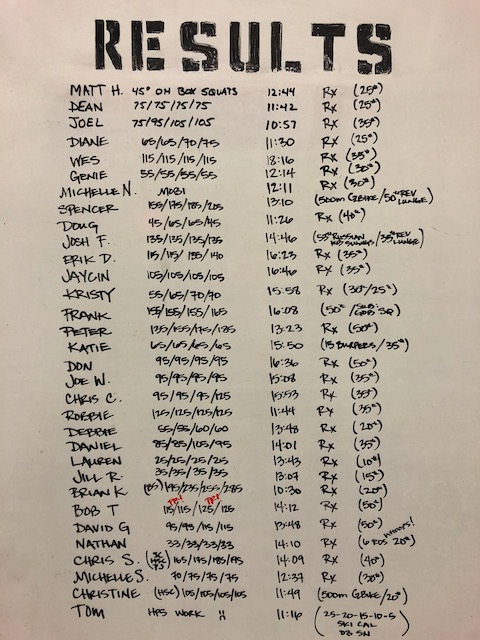 RESULTS
MATT H. 45# ON BOX SQUATS 12:44 RX (25#)
DEAN 75/75/75/75 11:42 RX (25#)
JOEL 75/95/105/105 10:57 RX (35#)
DIANE 65/65/70/75 11:30 RX (25#)
WES 115/115/115/115 18:16 RX (35#)
GENIE 55/55/55/55 12:14 RX (30#)
MICHELLE N. MOBI 12:11 RX (30#)
SPENCER 155/175/185/205 13:10 (500m C2BIKE/50# REV LUNGE)
DOUG 45/65/65/45 11:26 RX (40#)
JOSH F. 135/135/135/135 14:46 (53# RUSSIAN KB SWINGS/35# REV LUNGE)
ERIK D. 115/115/135/140 16:23 RX (35#)
JAYCIN 105/105/105/105 16:46 RX (35#)
KRISTY 55/65/70/70 15:58 RX (30#/25#)
FRANK 155/155/155/165 16:08 (50#/SUB: GOB SQ)
PETER 135/155/175/135 13:23 RX (50#)
KATIE 65/65/65/65 15:50 (15 BURPEES/35#)
DON 95/95/95/95 16:36 RX (50#)
JOE W. 95/95/95/95 15:08 RX (35#)
CHRIS C. 95/95/95/125 15:53 RX (35#)
ROBBIE 125/125/125/125 11:44 RX (35#)
DEBBIE 55/55/60/60 13:48 RX (20#)
DANIEL 85/85/105/95 14:01 RX (35#)
LAUREN 25/25/25/25 13:43 RX (10#)
JILL R. 35/35/35/35 13:07 RX (15#)
BRIAN K (185)/195/235/255/285 10:30 RX (20#)
PR! PR!
BOB T 115/115/125/125 14:12 RX (50#)
DAVID G 95/95/115/115 13:48 RX (50#)
NATHAN 33/33/33/33 14:10 RX (6 RDS 20#) WHOOPS!
CHRIS S. 165/175/185/195 14:09 RX (40#)
MICHELLE S. 70/75/75/75 12:37 RX (30#)
CHRISTINE (HSC) 105/105/105/105 11:49 (500m C2BIKE/20#)
TOM HPS WORK 11:16 (25-20-15-10-5
SKI CAL
DB SN)